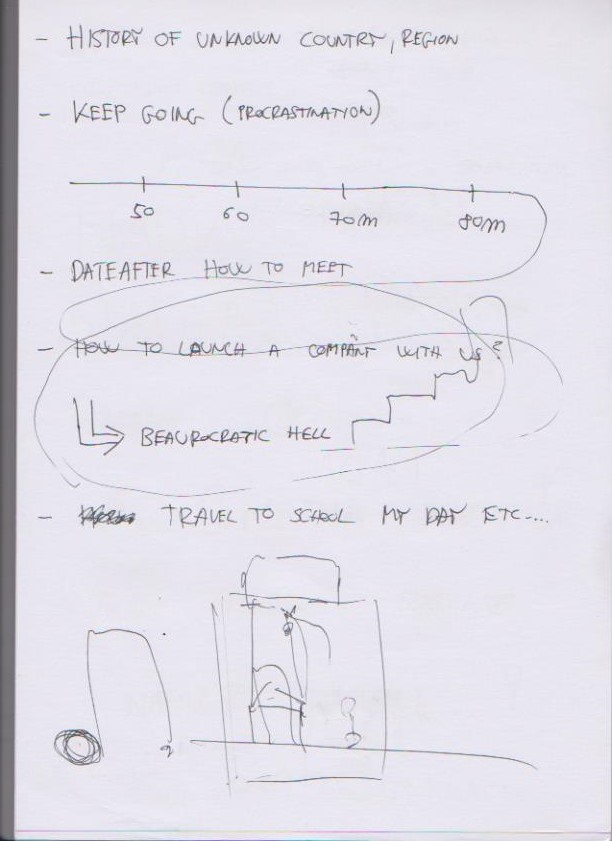 - HISTORY OF UNKNOWN COUNTRY, REGION
- KEEP GOING (PROCRASTINATION)
50 60 70m 80m
- DATEAFTER HOW TO MEET
- HOW TO LAUNCH A COMPANY WITH US?
BEAUROCRATIC HELL
- TRAVEL TO SCHOOL MY DAY ETC....